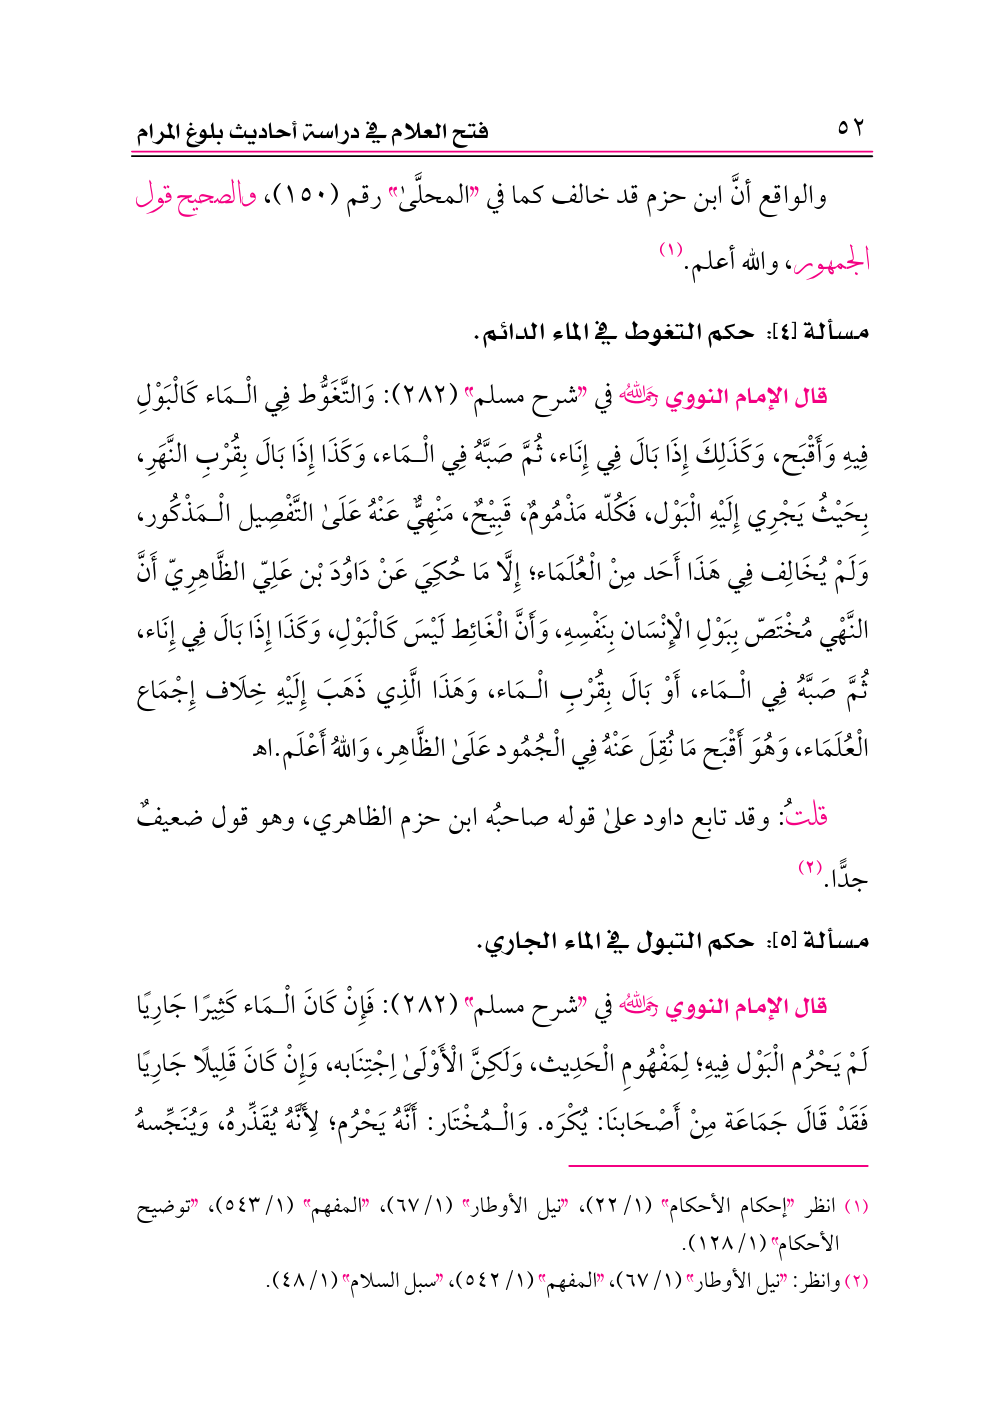 ٥٢
فتح العلام في دراسة أحاديث بلوغ المرام
والواقع أنَّ ابن حزم قد خالف كما في "المحلَّىٰ" رقم (١٥٠)، والصحيح قول
الجمهور، والله أعلم.(١)
مسألة [٤]: حكم التغوط في الماء الدائم.
قال الإمام النووي رحمه الله في "شرح مسلم" (٢٨٢): وَالتَّغَوُّط فِي الْـمَاء كَالْبَوْلِ
فِيهِ وَأَقْبَح، وَكَذَلِكَ إِذَا بَالَ فِي إِنَاء، ثُمَّ صَبَّهُ فِي الْـمَاء، وَكَذَا إِذَا بَالَ بِقُرْبِ النَّهَرِ،
بِحَيْثُ يَجْرِي إِلَيْهِ الْبَوْل، فَكُلّه مَذْمُومٌ، قَبِيْحٌ، مَنْهِيٌّ عَنْهُ عَلَىٰ التَّفْصِيل الْـمَذْكُور،
وَلَمْ يُخَالِف فِي هَذَا أَحَد مِنْ الْعُلَمَاء؛ إِلَّا مَا حُكِيَ عَنْ دَاوُدَ بْن عَلِيّ الظَّاهِرِيّ أَنَّ
النَّهْي مُخْتَصّ بِبَوْلِ الْإِنْسَان بِنَفْسِهِ، وَأَنَّ الْغَائِط لَيْسَ كَالْبَوْلِ، وَكَذَا إِذَا بَالَ فِي إِنَاء،
ثُمَّ صَبَّهُ فِي الْـمَاء، أَوْ بَالَ بِقُرْبِ الْـمَاء، وَهَذَا الَّذِي ذَهَبَ إِلَيْهِ خِلَاف إِجْمَاع
الْعُلَمَاء، وَهُوَ أَقْبَح مَا نُقِلَ عَنْهُ فِي الْجُمُود عَلَىٰ الظَّاهِر، وَاللهُ أَعْلَم.اهـ
قلتُ: وقد تابع داود علىٰ قوله صاحبُه ابن حزم الظاهري، وهو قول ضعيفٌ
جدًّا.(٢)
مسألة [٥]: حكم التبول في الماء الجاري.
قال الإمام النووي رحمه الله في "شرح مسلم" (٢٨٢): فَإِنْ كَانَ الْـمَاء كَثِيرًا جَارِيًا
لَمْ يَحْرُم الْبَوْل فِيهِ؛ لِمَفْهُومِ الْحَدِيث، وَلَكِنَّ الْأَوْلَىٰ اِجْتِنَابه، وَإِنْ كَانَ قَلِيلًا جَارِيًا
فَقَدْ قَالَ جَمَاعَة مِنْ أَصْحَابنَا: يُكْرَه. وَالْـمُخْتَار: أَنَّهُ يَحْرُم؛ لِأَنَّهُ يُقَذِّرهُ، وَيُنَجِّسهُ
(١) انظر "إحكام الأحكام" (١/ ٢٢)، "نيل الأوطار" (١/ ٦٧)، "المفهم" (١/ ٥٤٣)، "توضيح
الأحكام" (١/ ١٢٨).
(٢) وانظر: "نيل الأوطار" (١/ ٦٧)، "المفهم" (١/ ٥٤٢)، "سبل السلام" (١/ ٤٨).